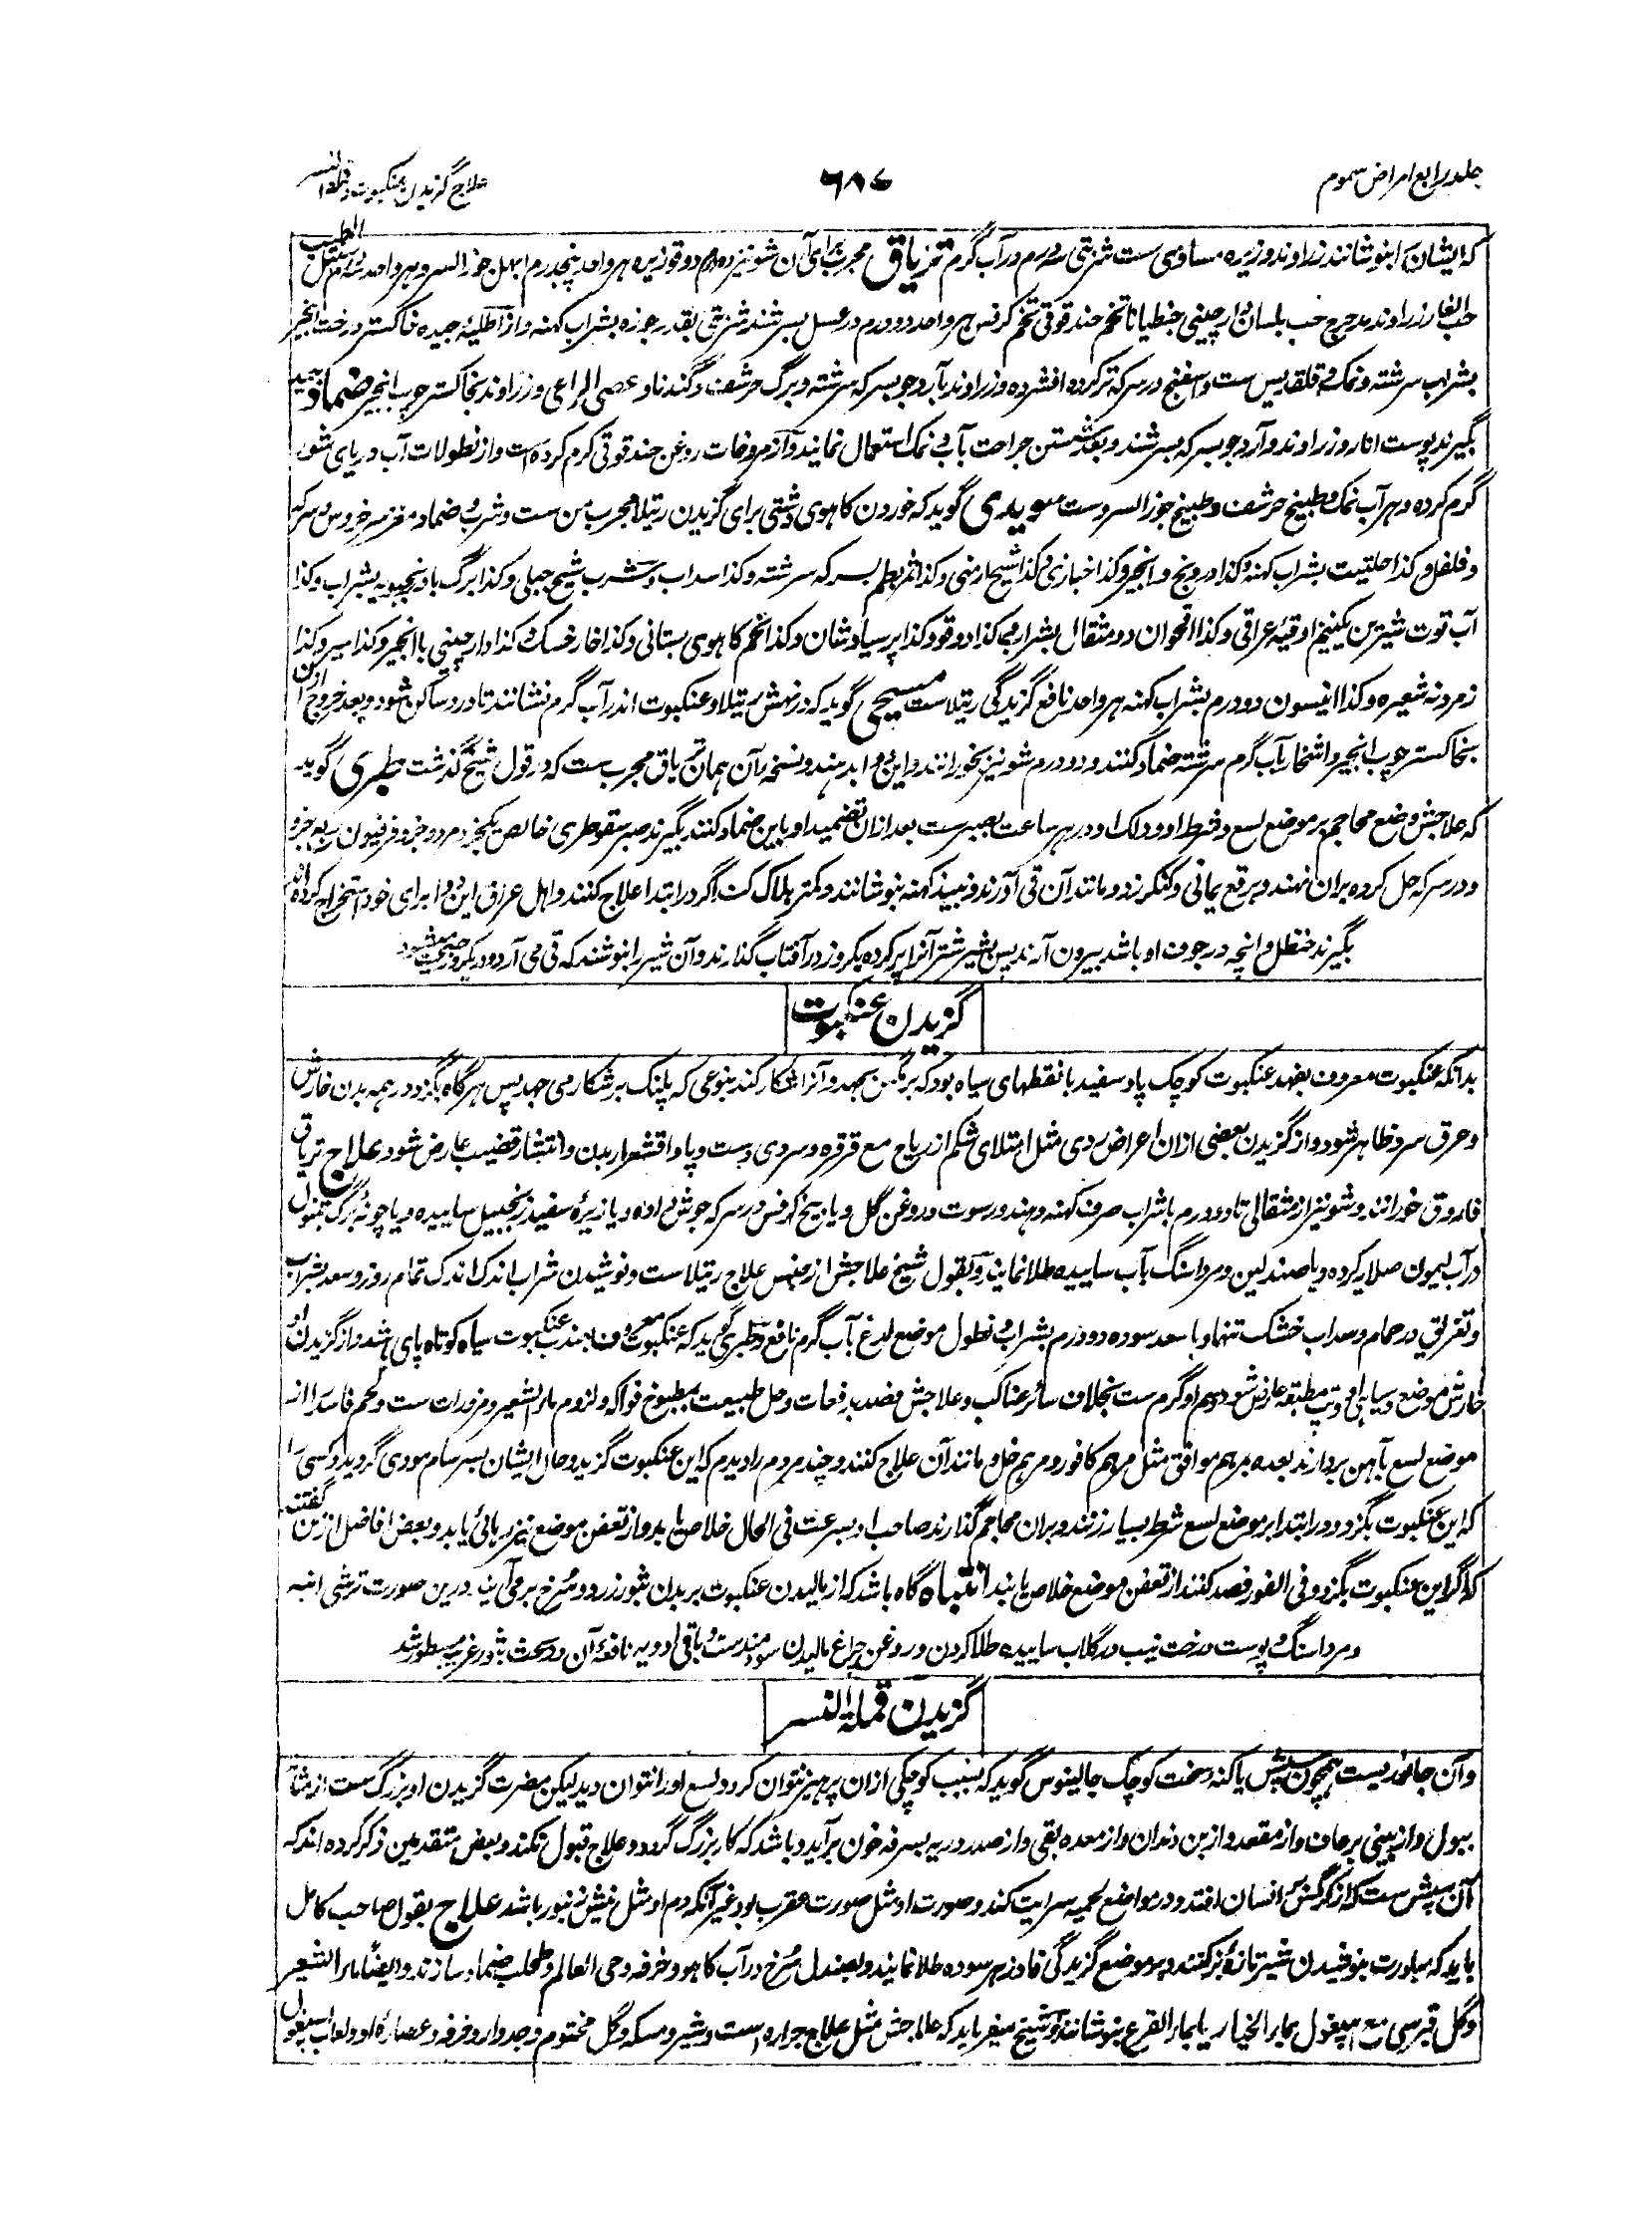 جلد رابع امراض سموم
٦٨٤
علاج گزیدن عنکبوت و قملة النسر
که ایشان را بنوشانند زراوند و زیره مساوی ست شربتی سه درم در آب گرم تریاق مجرب برای آن شونیز ده درم دوقو زیره هر واحد پنجدرم ابهل جوز السرو هر واحد سه درم سنبل الطیب
حب الغار زراوند مدحرج حب بلسان دارچینی جنطیانا تخم حندقوقی تخم کرفس هر واحد دو درم در عسل بسرشند شربتی بقدر جوزه بشراب کهنه و از اطلیۀ جیده خاکستر درخت انجیر
بشراب سرشته و نمک و قلقدیس ست و اسفنج در سرکه تر کرده افشرده و زراوند بآرد جو بسرکه سرشته و برگ حرشف و گندنا و عصی الراعی و زراوند بخاکستر چوب انجیر ضماد جید
بگیرند پوست انار و زراوند و آرد جو بسرکه بسرشند و بعد شستن جراحت بآب و نمک استعمال نمایند و از مروخات روغن حندقوقی گرم کرده است و از نطولات آب دریای شور
گرم کرده و هر آب نمک و طبیخ حرشف و طبیخ جوز السرو ست سویدی گوید که خوردن کاهوی دشتی برای گزیدن رتیلا مجرب من ست و شرب و ضماد مغز سر خروس و سرکه
و فلفل و کذا حلتیت بشراب کهنه و کذا درونج و انجیر و کذا خبازی و کذا شیح ارمنی و کذا ثمر بطم بسرکه سرشته و کذا سداب و شرب شیح جبلی و کذا برگ بادرنجبویه بشراب و کذا
آب توت شیرین یکنیم اوقیۀ عراقی و کذا اقحوان دو مثقال بشراب و کذا دوقو و کذا پرسیاوشان و کذا تخم کاهوی بستانی و کذا خار خسک و کذا دارچینی با انجیر و کذا سیر و کذا
زمرد نه شعیره و کذا انیسون دو درم بشراب کهنه هر واحد نافع گزیدگی رتیلاست مسیحی گوید که در نهش رتیلا و عنکبوت اندر آب گرم نشانند تا درد ساکن شود و بعد خروج ازان
بخاکستر چوب انجیر و اشخار بآب گرم سرشته ضماد کنند و دو درم شونیز بخورانند و این دوا بدهند و نسخۀ آن همان تریاق مجرب ست که در قول شیخ گذشت طبری گوید
که علاجش وضع محاجم بر موضع لسع و شرط او و دلک او در هر ساعت بصبر ست بعد ازان تضمید او باین ضماد کنند بگیرند صبر سقوطری خالص یکجزو مر دو جزو فرفیون ربع جزو
و در سرکه حل کرده بران نهند و برقع یمانی و کنگرزد و مانند آن قی آورند و نبیذ کهنه بنوشانند و کمتر هلاک کند اگر در ابتدا علاج کنند و اهل عراق این دوا برای خود استخراج کرده اند
بگیرند حنظل و انچه در جوف او باشد بیرون آرند پس بشیر شتر آنرا پر کرده یکروز در آفتاب گذارند و آن شیر را بنوشند که قی می آرد و دیگر صحیح میشود
گزیدن عنکبوت
بدانکه عنکبوت معروف بفهد عنکبوت کوچک پا و سفید با نقطهای سیاه بود که بر مگس بجهد و آنرا شکار کند بنوعی که پلنگ بر شکار می جهد پس هرگاه بگزد در همه بدن خارش
و عرق سرد ظاهر شود و از گزیدن بعضی ازان اعراض ردی مثل امتلای شکم از ریاح مع قرقره و سردی دست و پا و اقشعرار بدن و انتشار قضیب عارض شود علاج تریاق
فاروق خورانند و شونیز از مثقالی تا دو درم با شراب صرف کهنه دهند و رسوت در روغن گل و یا بیخ کرفس در سرکه جوش داده و یا زیرۀ سفید زنجبیل ساییده و یا چونه برگ تنبول
در آب لیمون صلایه کرده و یا صندلین و مرداسنگ بآب ساییده طلا نمایند و بقول شیخ علاجش از جنس علاج رتیلاست و نوشیدن شراب اندک اندک تمام روز و سعد بشراب
و تعریق در حمام و سداب خشک تنها و با سعد سوده دو درم بشراب و نطول موضع لدغ بآب گرم نافع و طبری گوید که عنکبوت معروف بفهد عنکبوت سیاه کوتاه پای باشد و از گزیدن او
خارش موضع و سیاهی او و تپ مطبقه عارض شود و سم او گرم ست بخلاف سائر عناکب و علاجش فصد بدفعات و حل طبیعت بمطبوخ فواکه و لزوم ماء الشعیر و مزورات ست و لحم فاسد را از
موضع لسع بآهن بردارند بعده بمرهم موافق مثل مرهم کافور و مرهم خل و مانند آن علاج کنند و چند مردم را دیدم که این عنکبوت گزید و حال ایشان بسرسام مودی گردید و کسی را
که این عنکبوت بگزد و در ابتدا بر موضع لسع شرط بسیار زنند و بران محاجم گذارند صاحب او بسرعت فی الحال خلاص یابد و از تعفن موضع نیز رهائی یابد و بعض افاضل ازین گفته
که اگر این عنکبوت بگزد و فی الفور فصد کنند از تعفن موضع خلاص یابند انتباه گاه باشد که از مالیدن عنکبوت بر بدن بثور زرد و سرخ برمی آیند درین صورت ترشی انبه
و مرداسنگ و پوست درخت نیب در گلاب ساییده طلا کردن و روغن چراغ مالیدن سودمند ست و باقی ادویه نافعۀ آن در بحث بثور غریبه مسطور شد
گزیدن قملة النسر
و آن جانوریست همچون سپش یا کنه سخت کوچک جالینوس گوید که بسبب کوچکی ازان پرهیز نتوان کرد و لسع او را نتوان دید لیکن مضرت گزیدن او بزرگ ست از مثانه
ببول و از بینی برعاف و از مقعد و از بن دندان و از معده بقی و از صدر و ریه بسرفه خون برآید و باشد که کار بزرگ گردد و علاج قبول نکند و بعض متقدمین ذکر کرده اند که
آن سپش ست که از کرگس بر انسان افتد و در مواضع لحمیه سرایت کند و صورت او مثل صورت عقرب بود غیر آنکه دم او مثل نیش زنبور باشد علاج بقول صاحب کامل
باید که مبادرت بنوشیدن شیر تازۀ بز کنند و بر موضع گزیدگی فادزهر سوده طلا نمایند و بصندل سرخ در آب کاهو و خرفه و حی العالم و طحلب ضماد سازند و ایضاً ماء الشعیر
و گل قبرسی مع اسپغول بماء الخیار یا بماء القرع بنوشانند و شیخ میفرماید که علاجش مثل علاج جراره است و شیر و مسکه و گل مختوم و جدوار و خرفه و عصارۀ او و لعاب اسپغول